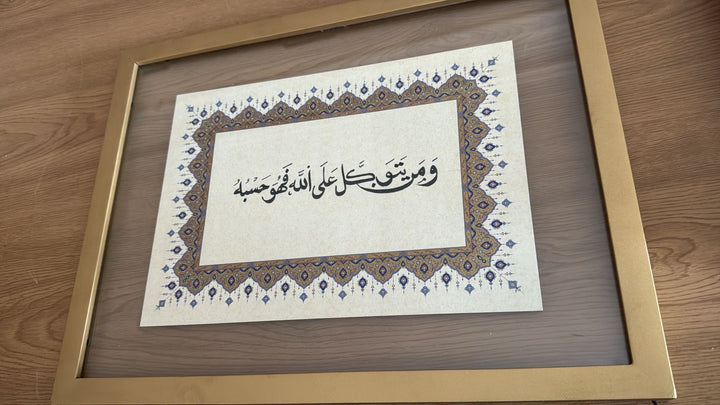 وَمَن يَتَوَكَّل عَلَى اللَّه فَهُوَ حَسْبُهُ